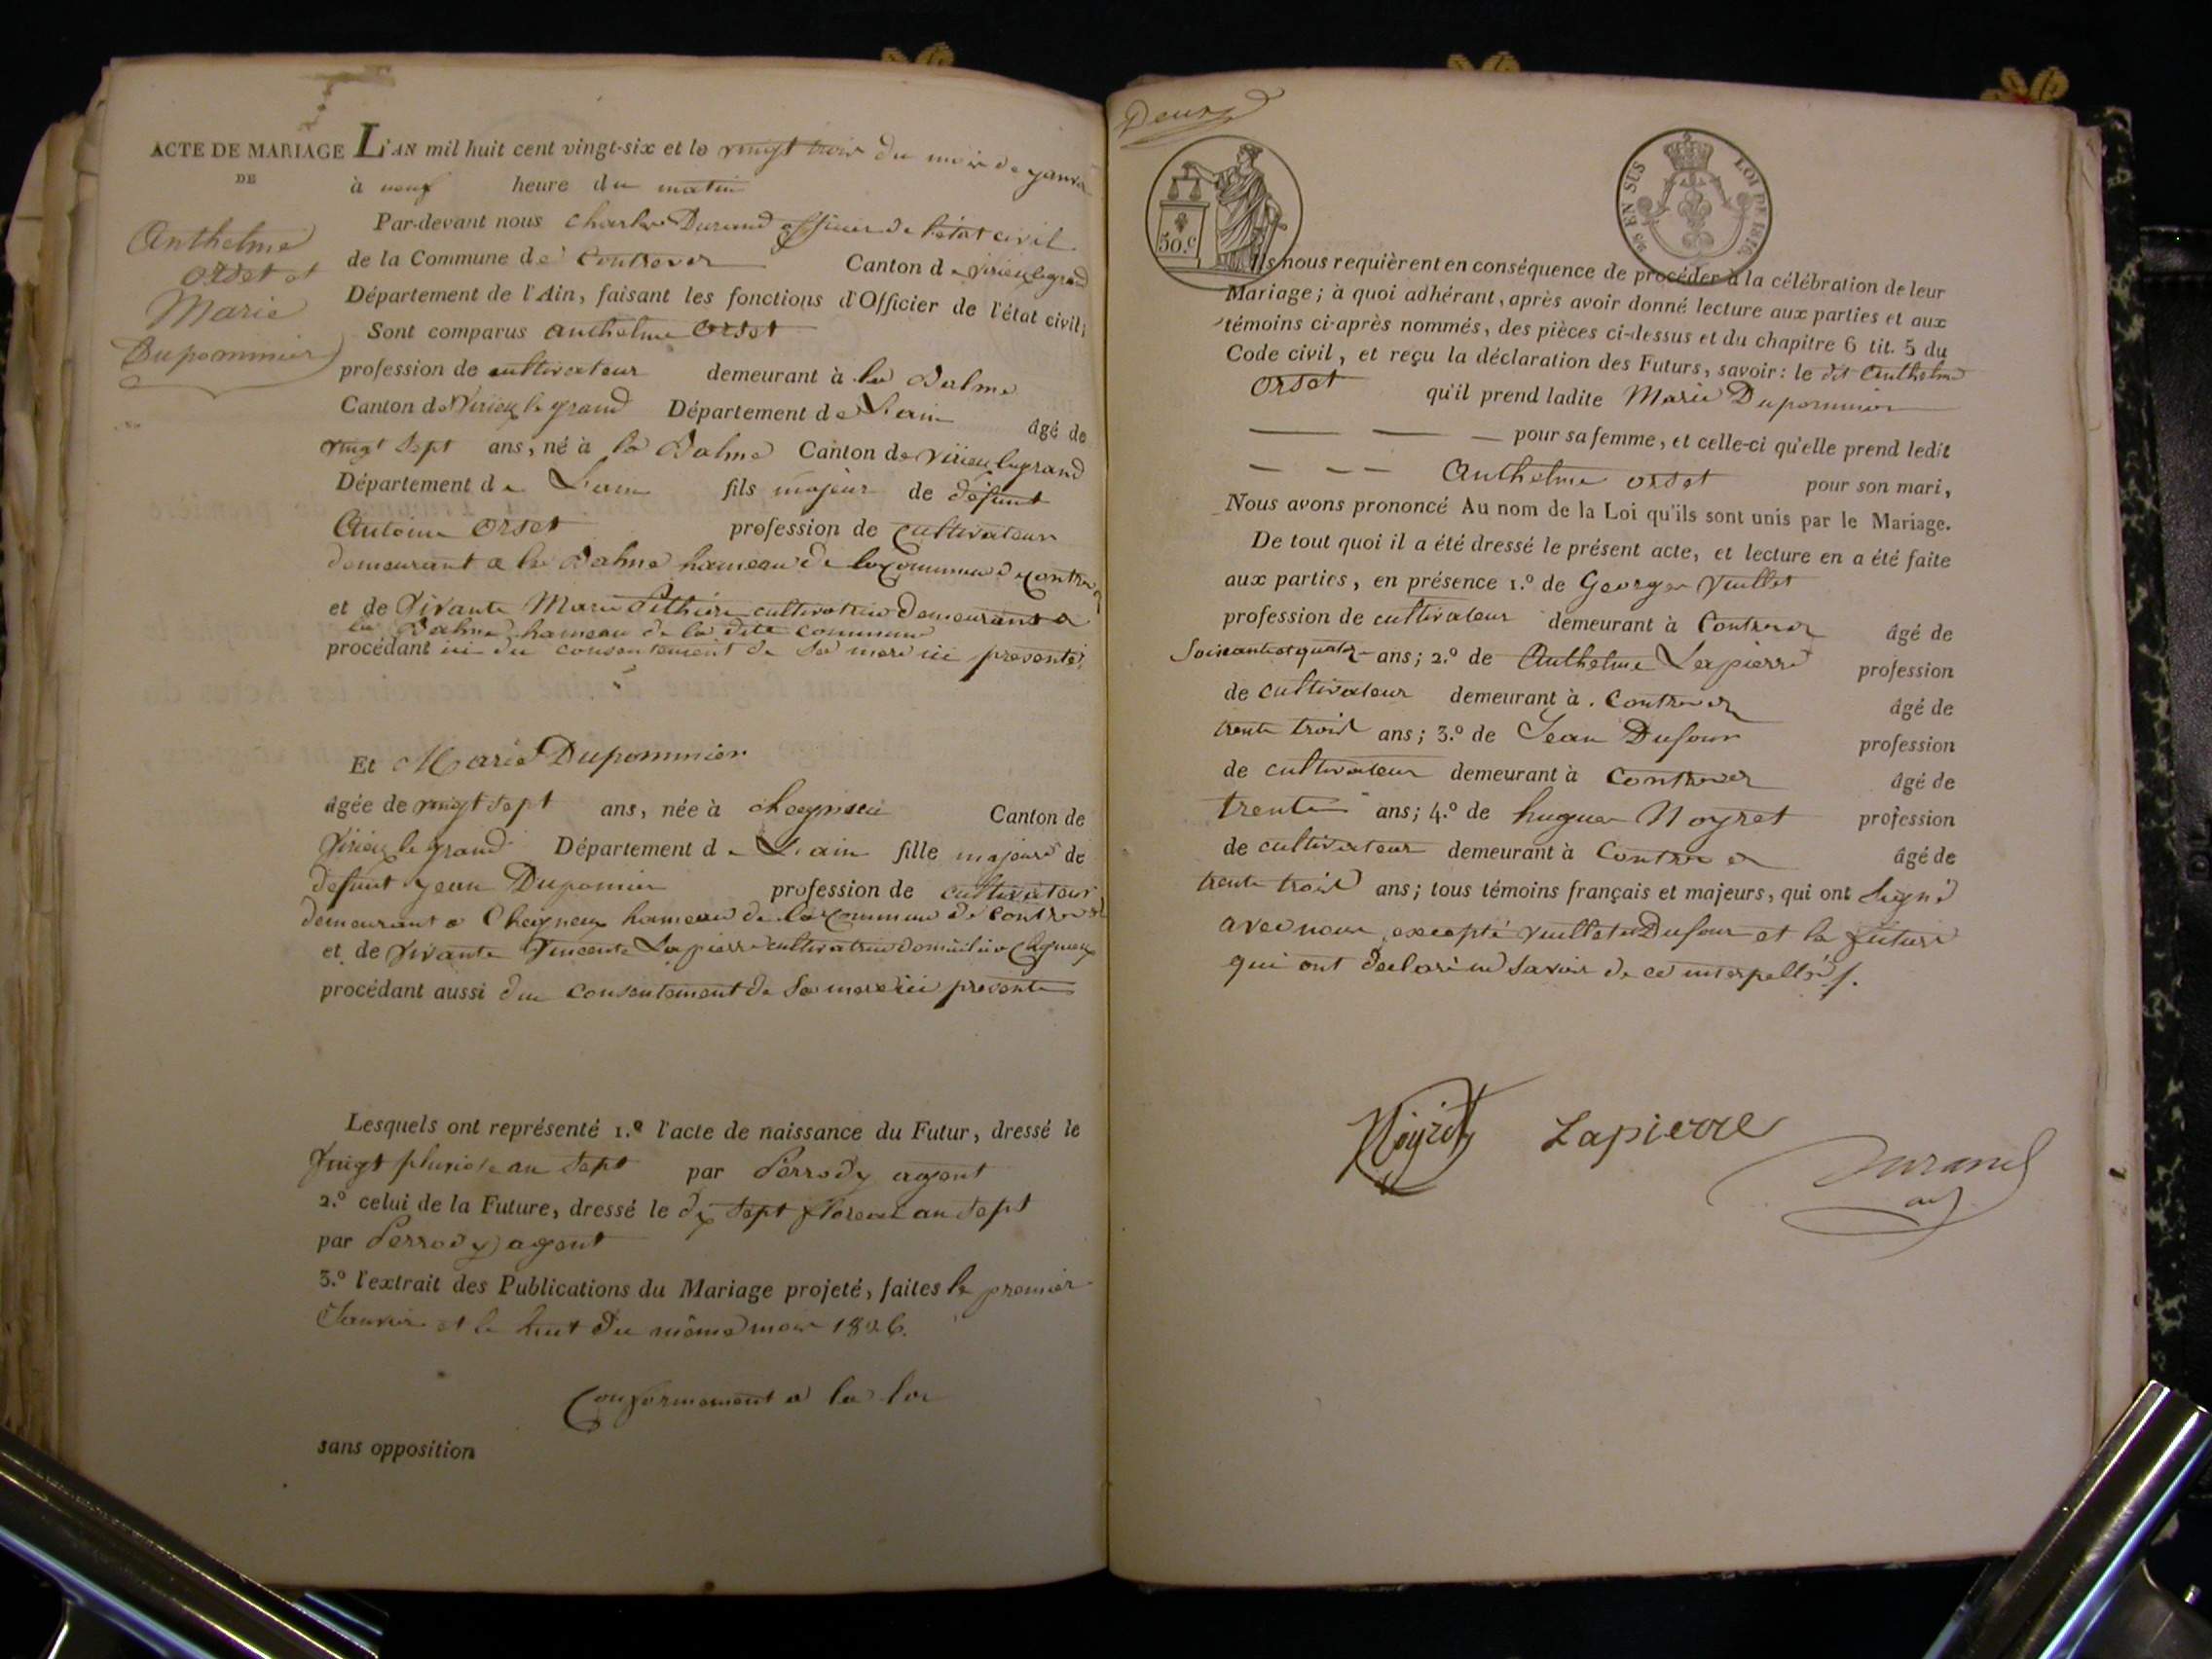 ACTE DE MARIAGE
DE
Anthelme
Orset et
Marie
Dupommier
L'AN mil huit cent vingt-six et le vingt trois du mois de janvi
à neuf heure du matin
Par-devant nous Charles Durand officier de l'état civil
de la Commune de Contrevoz Canton de Virieu le grand
Département de l'Ain, faisant les fonctions d'Officier de l'état civil;
Sont comparus Anthelme Orset
profession de cultivateur demeurant à la Balme
Canton de Virieu le grand Département de L'ain âgé de
vingt sept ans, né à la Balme Canton de Virieu le grand
Département de L'ain fils majeur de défunt
Antoine Orset profession de cultivateur
demeurant a la Balme hameau de la Commune de contre
et de Vivante Marie cultivatrice demeurant a
la Balme hameau de la dite commune
procédant ici du consentement de sa mere ici presente
Et Marie Dupommier
âgée de vingt sept ans, née à Canton de
Virieu le grand Département de L'ain fille majeure de
defunt jean Dupomier profession de cultivateur
demeurant a Cheigneux hameau de la commune de Contrevoz
et de Vivante Vincente Lapierre cultivatrice a Chegneux
procédant aussi du consentement de sa mere ici presente
Lesquels ont représenté 1.º l'acte de naissance du Futur, dressé le
Vingt pluviose an sept par Perrody agent
2.º celui de la Future, dressé le dix sept floreal an sept
par Perrody agent
3.º l'extrait des Publications du Mariage projeté, faites le premier
Janvier et le huit du même mois 1826.
Conformement a la loi
sans opposition
Deux
50.C
EN SUS
LOI DE 1816
Ils nous requièrent en conséquence de procéder à la célébration de leur
Mariage; à quoi adhérant, après avoir donné lecture aux parties et aux
témoins ci-après nommés, des pièces ci-dessus et du chapitre 6 tit. 5 du
Code civil, et reçu la déclaration des Futurs, savoir: le dit Anthelme
Orset qu'il prend ladite Marie Dupommier
pour sa femme, et celle-ci qu'elle prend ledit
Anthelme Orset pour son mari,
Nous avons prononcé Au nom de la Loi qu'ils sont unis par le Mariage.
De tout quoi il a été dressé le présent acte, et lecture en a été faite
aux parties, en présence 1.º de George Vuillet
profession de cultivateur demeurant à Contrevoz âgé de
Soixante et quatre ans; 2.º de Anthelme Lapierre profession
de cultivateur demeurant à Contrevoz âgé de
trente trois ans; 3.º de Jean Dufour profession
de cultivateur demeurant à Contrevoz âgé de
trente ans; 4.º de hugues Noyret profession
de cultivateur demeurant à Contrevoz âgé de
trente trois ans; tous témoins français et majeurs, qui ont signé
avec nous excepté vuillet Dufour et les futurs
qui ont declaré ne savoir de ce interpellés.
Noyret Lapierre Durand